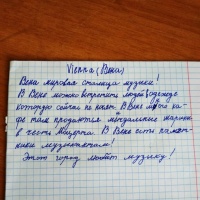 Vienna (Вена)
Вена мировая столица музыки!
В Вене можно встретить людей в одежде
которую сейчас не носят. В Вене много ка-
фе там продаются миндальные шарики
в честь Моцарта. В Вене есть памят-
ники музыкантам!
Этот город любит музыку!